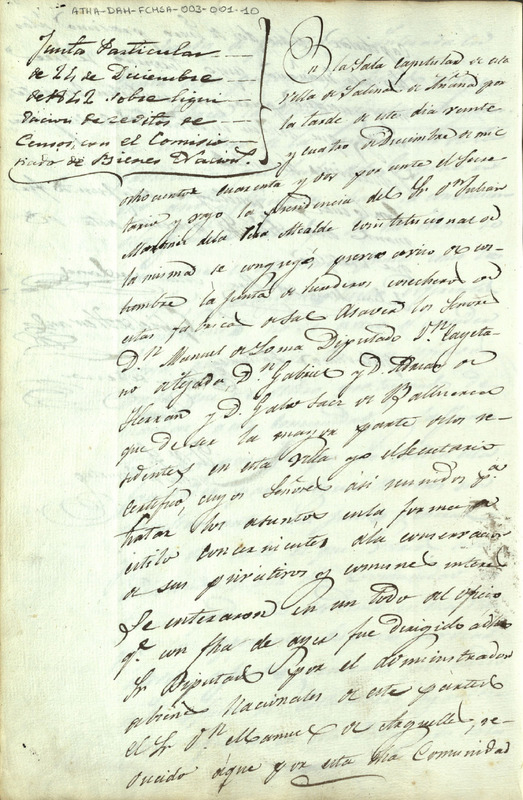 ATHA-DAH-FCHSA-003-001-10
Junta Particular
de 24 de Diciembre
de 1842 sobre liqui
dacion de creditos de
Censos, con el Comisio
nado de Bienes Nacion.s
En la Sala Capitular de esta
villa de Salinas de Añana por
la tarde de este dia veinte
y cuatro de Diciembre de mil
ochocientos cuarenta y dos por ante el Secre
tario y vajo la presidencia del Sr. Dn Julian
Martinez dela Alcalde constitucional de
la misma se congregó, previo aviso de cos-
tumbre la Junta de herederos cosecheros de
estas fabricas de Sal Asaver los Señores
D.n Manuel de Soma Diputado D.n Cayeta-
no Alejada, D.n Gabriel y D. de
Herran y D. Galo Saez de Balluerca
que de ser la mayor parte delos re-
sidentes en esta villa yo el Secretario
certifico, cuyos Señores asi reunidos p.a
tratar los asuntos enla forma y
estilo concernientes ála conservacion
de sus privativos y comunes interes
Se enteraron en un todo del oficio
q.e con fha de ayer fue dirigido adho
Sr Diputado por el administrador
de bienes Nacionales de este partido
el Sr D.n Manuel de Arguelles, re-
ducido áque por esta dha Comunidad